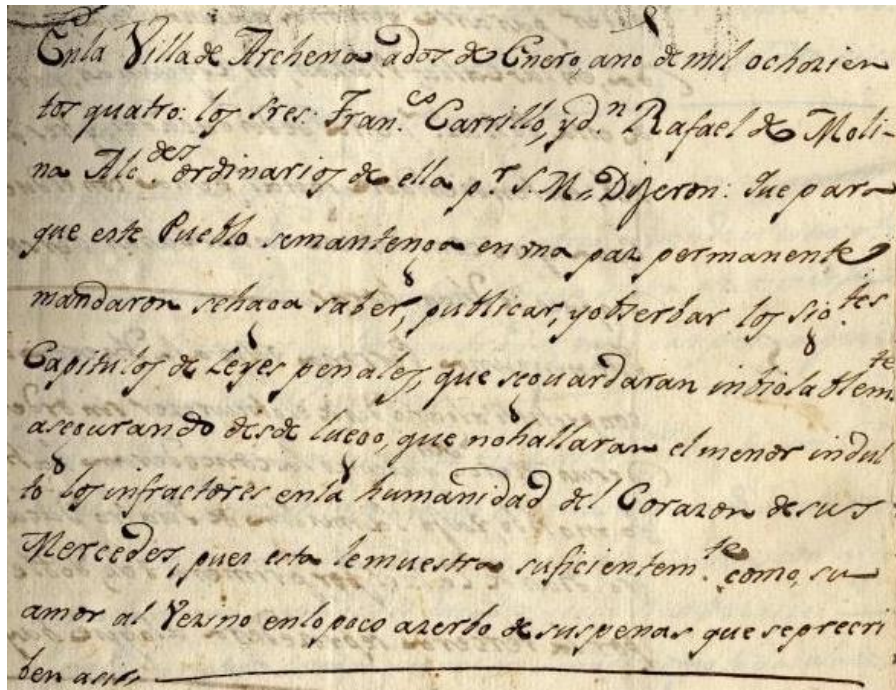 En la Villa de Archena a dos de Enero, ano de mil ochozien
tos quatro: los Sres. Fran.co Carrillo, y d.n Rafael de Moli-
na Alc.des ordinarios de ella p.r S. M. Dijeron: Que para
que este Pueblo se mantenga en una paz permanente
mandaron se haga saber, publicar, y obserbar los sig.tes
Capitulos de Leyes penales, que se guardaran inbiolablem.te
asegurando desde luego, que no hallaran el menor indul
to los infractores en la humanidad del Corazon de sus
Mercedes, pues esta le muestra suficientem.te como, su
amor al Vezino en lo poco azerbo de sus penas que se precri
ben asi